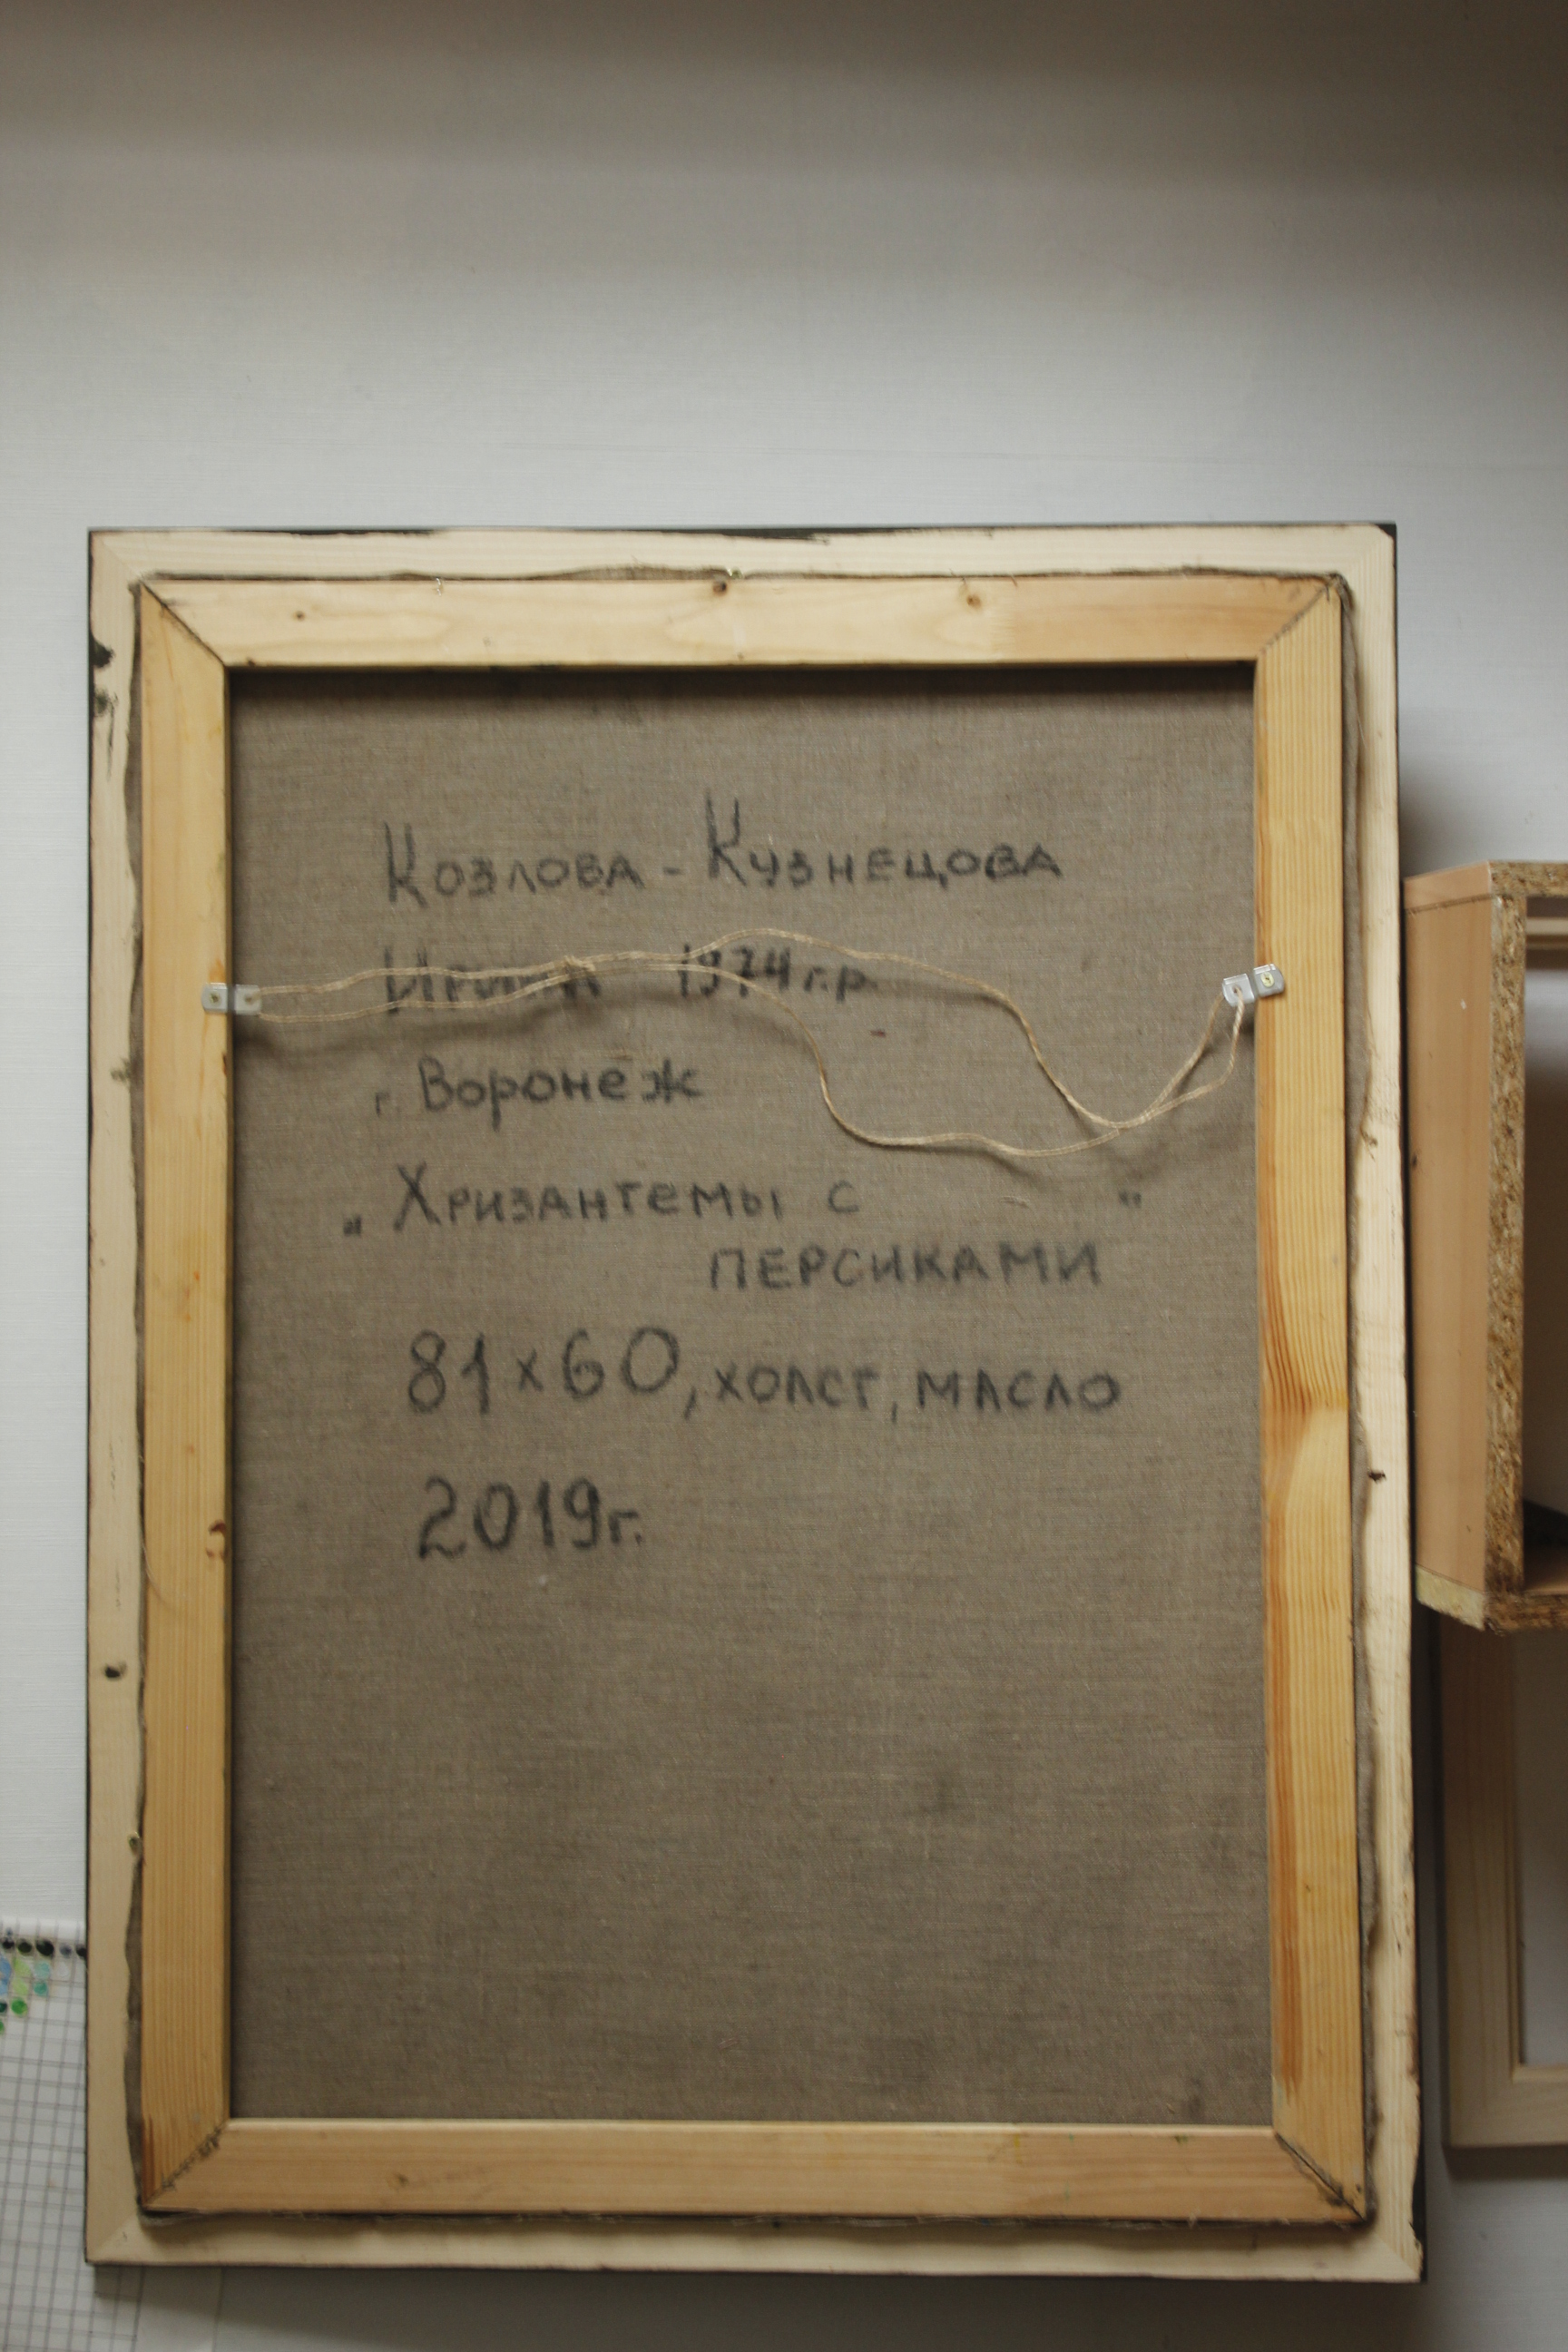 Козлова - Кузнецова
Ирина 1974 г.р.
г. Воронеж
„ Хризантемы с "
персиками
81 x 60, холст, масло
2019г.